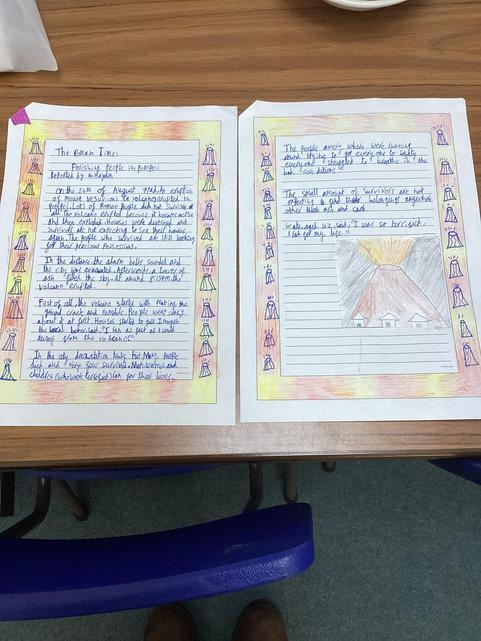 The Roman Times
Perishing People in Pompeii
Retold by
On the 24th of August 79AD.
of Mount Vesuvius a volcano erupted in
Pompeii. Lots of Roman people did not survive at
all. The volcano erupted because it became active
and then exploded. Houses were destroyed and
survivors are not expecting to see their houses
again. The people who survived are still looking
for their precious Possessions.
In the distance the alarm bells sounded and
the city was evacuated. Afterwards a tower of
ash filled the sky. At around 8:15PM the
volcano erupted.
First of all, the volcano starts with making the
ground crack and rumble. People went crazy
about it at first. Houses started to fall
the local baker, said, "I ran as fast as I could
away from the volcano."
In the city devastation Many people
died and very few survived. Most women and
children ran for their lives.
The people every where were running
around trying to get every one to safety
everyone struggled to breathe in the
bad conditions.
The small amount of survivors are not
expecting to find their belongings
other black ash and
Kate, aged 42, said, "I was so terrified,
I ran for my life."